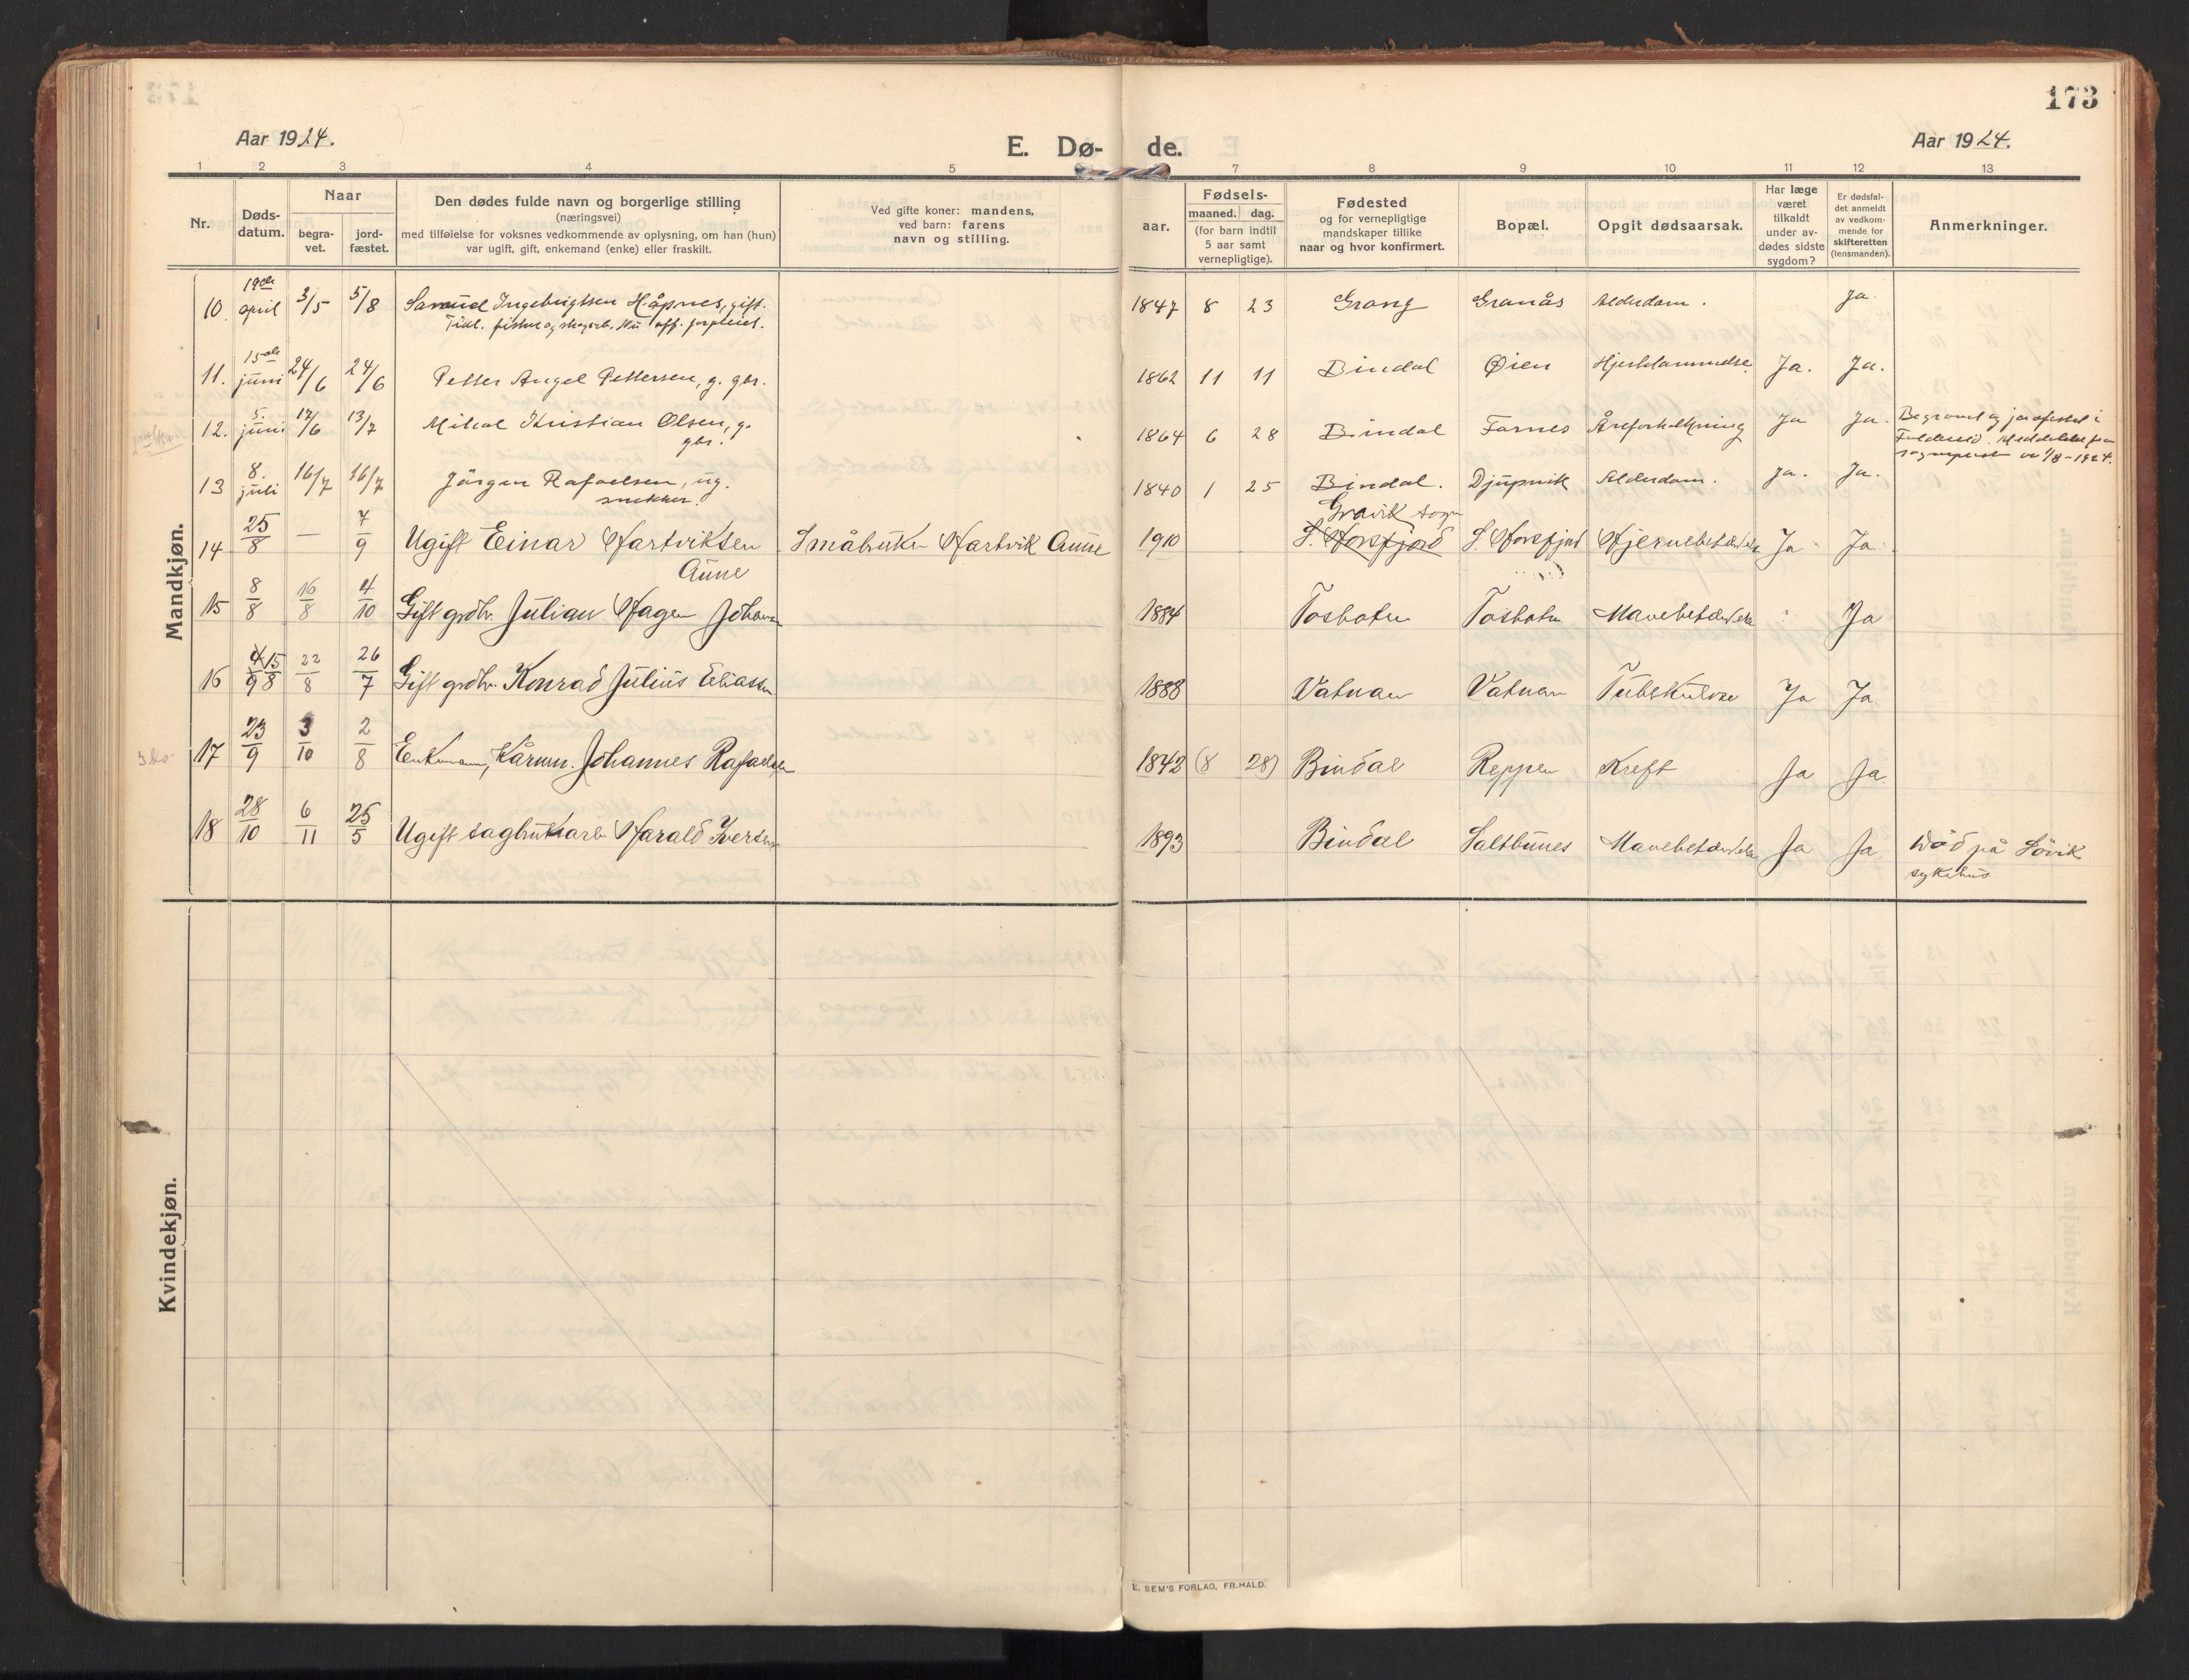 173
Aar 1924.
E. Dø- de.
Aar 1924.
1 2 3 4 5 7 8 9 10 11 12 13
Nr.
Døds-
datum.
Naar
begra-
vet.
jord-
fæstet.
Den dødes fulde navn og borgerlige stilling
(næringsvei)
med tilføielse for voksnes vedkommende av oplysning, om han (hun)
var ugift, gift, enkemand (enke) eller fraskilt.
Ved gifte koner: mandens,
ved barn: farens
navn og stilling.
aar.
Fødsels-
maaned. dag.
(for barn indtil
5 aar samt
vernepligtige).
Fødested
og for vernepligtige
mandskaper tillike
naar og hvor konfirmert.
Bopæl.
Opgit dødsaarsak.
Har læge
været
tilkaldt
under av-
dødes sidste
sygdom?
Er dødsfal-
det anmeldt
av vedkom-
mende for
skifteretten
(lensmanden).
Anmerkninger.
Mandkjøn.
10. 19de april 3/5 5/8 Samuel Ingebrigtsen Håpnes, gift. 1847 8 23 Grong Granås Alderdom. Ja.
Tidl. fisker og skogarb. Nu off. forpleiet.
11. 15de juni 24/6 24/6 Petter Angel Pettersen, g. gbr. 1862 11 11 Bindal Øien Hjertelammelse Ja. Ja.
12. 5. juni 17/6 13/7 Mikal Kristian Olsen, g. gbr. 1864 6 28 Bindal Farnes Åreforkalkning Ja Ja. Begravet og jordfestet i
Foldereid. Meddelelse fra
13 8. juli 16/7 16/7 Jørgen Rafaelsen, ug. snekker. 1840 1 25 Bindal. Djupvik Alderdom. Ja. Ja.
14 25/8 — 7/9 Ugift Einar Hartviksen Aune Småbruker Hartvik Aune 1910 Gravik sogn S. Horsfjord S. Horsfjord Hjernebetændelse Ja Ja
15 8/8 16/8 4/10 Gift grdbr. Julian Hagen Johansen 1884 Tosbotn Tosbotn Mavebetændelse Ja
16 4/9 15/8 22/8 26/7 Gift grdbr. Konrad Julius Eliassen 1888 Vatnan Vatnan Tuberkulose Ja Ja
17 23/9 3/10 2/8 Enkemann, Kårm. Johannes Rafaelsen 1842 (8 28) Bindal Reppen Kreft Ja Ja
18 28/10 6/11 25/5 Ugift sagbruksarb. Harald Iversen 1893 Bindal Saltbunes Mavebetændelse Ja Ja Død på Søvik
sykehus
Kvindekjøn.
E. SEM'S FORLAG, FR.HALD.